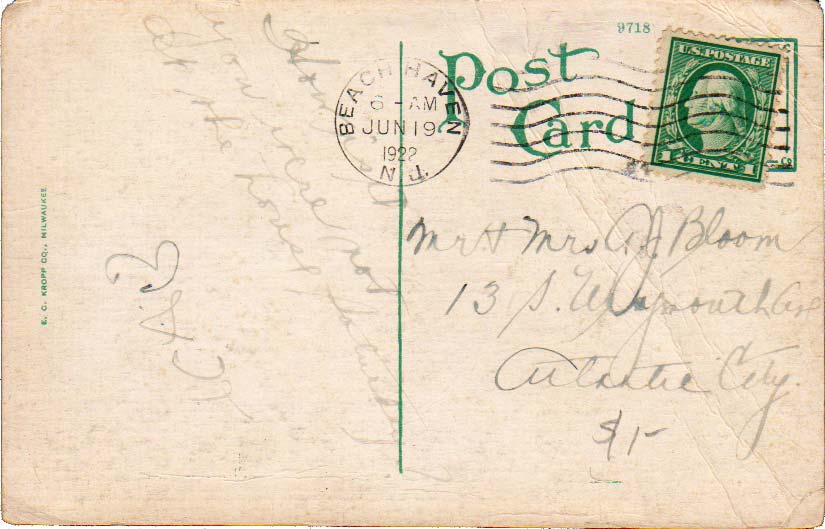 9718
Post
Card
U.S. POSTAGE
1 CENT 1
BEACH HAVEN
6 - AM
JUN 19
1922
N.J.
you were not
At the house Saturday
Mr & Mrs A J Bloom
13 S. Weymouth Ave
Atlantic City.
$1-
E. C. KROPP CO., MILWAUKEE